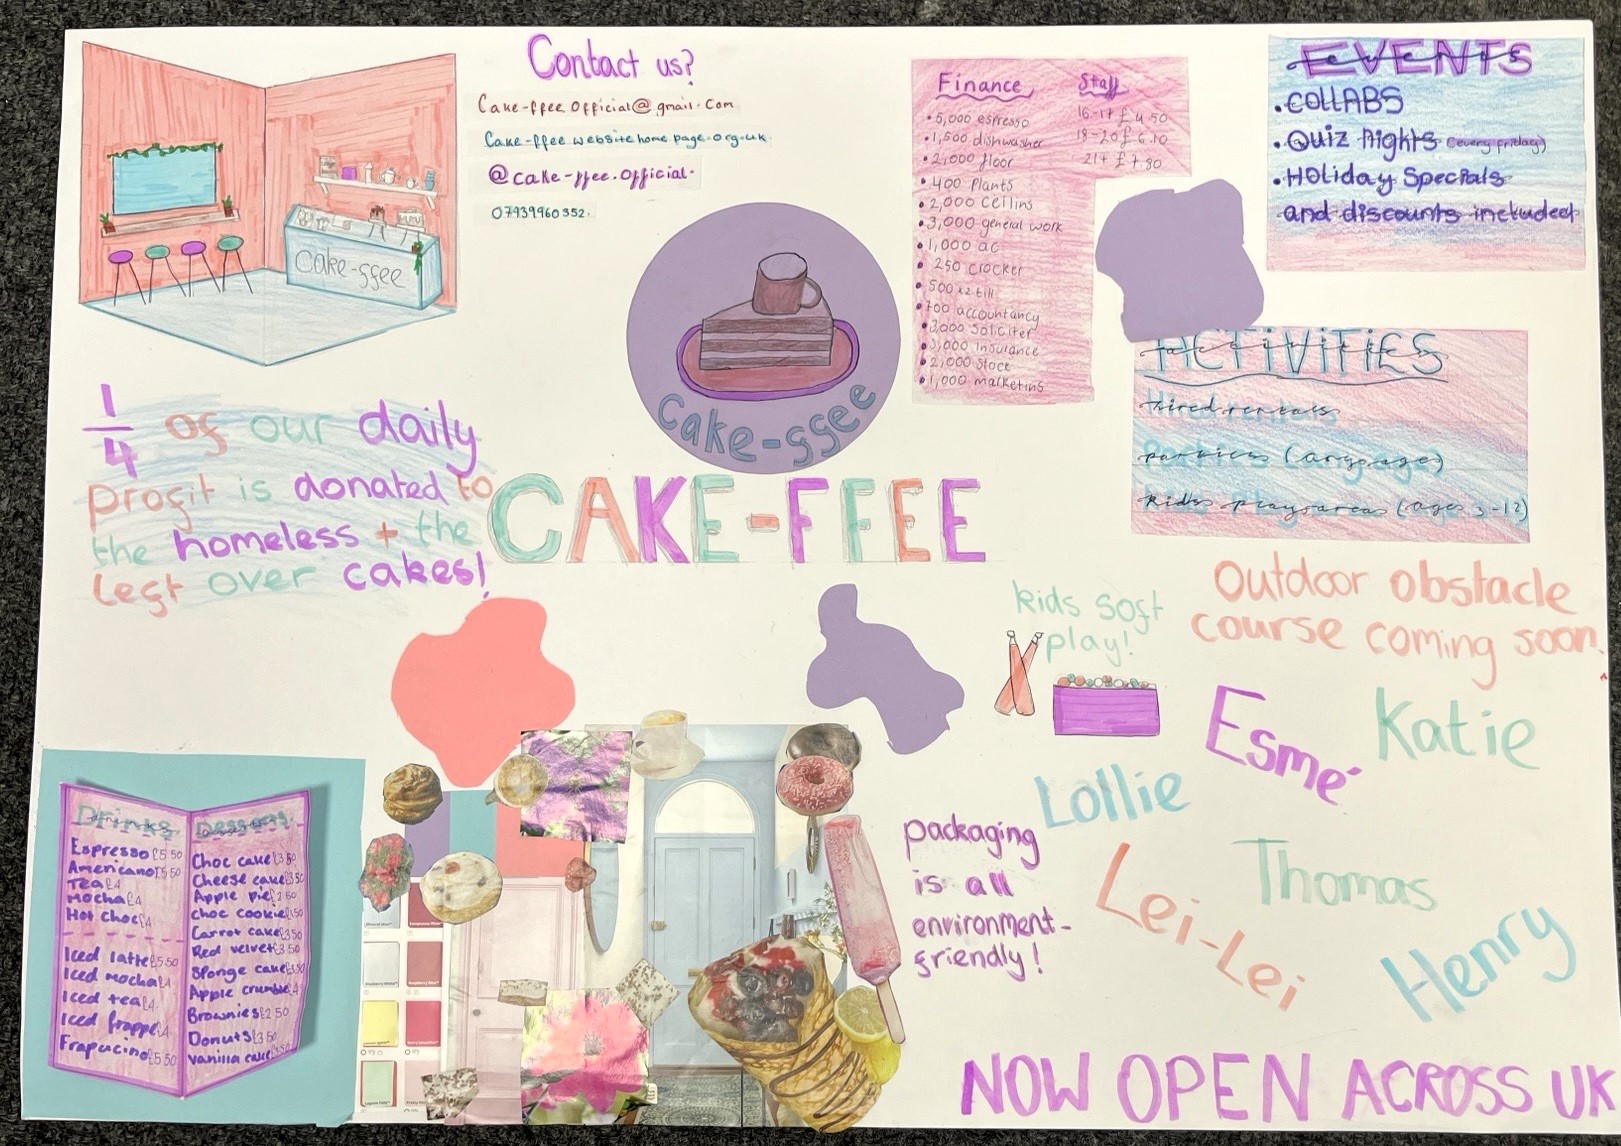 Contact us?
Cake-ffee.Official@gmail.com
Cake-ffee websitehomepage.org.uk
@cake-ffee.official.
07939960352.
Cake-ffee
Cake-ffee
Finance
• 5,000 espresso
• 1,500 dishwasher
• 2,000 floor
• 400 Plants
• 2,000 Ceilins
• 3,000 general work
• 1,000 ac
• 250 crocker
• 500 x2 till
• 700 accountancy
• 3,000 Soliciter
• 3,000 insurance
• 2,000 Stock
• 1,000 marketins
Staff
16-17 £4.50
18-20 £6.10
21+ £7.80
EVENTS
• COllABS
• Quiz Nights (every friday)
• Holiday Specials
and discounts included
ACTiViTiES
Hired rentals
parties (any age)
kids plays areas (ages 3-12)
1/4 of our daily
profit is donated to
the homeless + the
left over cakes!
CAKE-FFEE
kids soft
play!
Outdoor obstacle
course coming soon.
Esmé
Katie
Lollie
Lei-Lei
Thomas
Henry
packaging
is all
environment-
friendly!
Drinks
Espresso £5.50
Americano £5.50
Tea £4
Mocha £4
Hot Choc £4
Iced latte £5.50
Iced mocha £4
Iced tea £4
Iced frappe £4
Frapucino £5.50
Desserts
Choc cake £3.50
Cheese cake £3.50
Apple pie £2.50
choc cookie £1.50
Carrot cake £3.50
Red velvet £3.50
Sponge cake £3.50
Apple crumble £4
Brownies £2.50
Donuts £3.50
Vanilla cake
NOW OPEN ACROSS UK